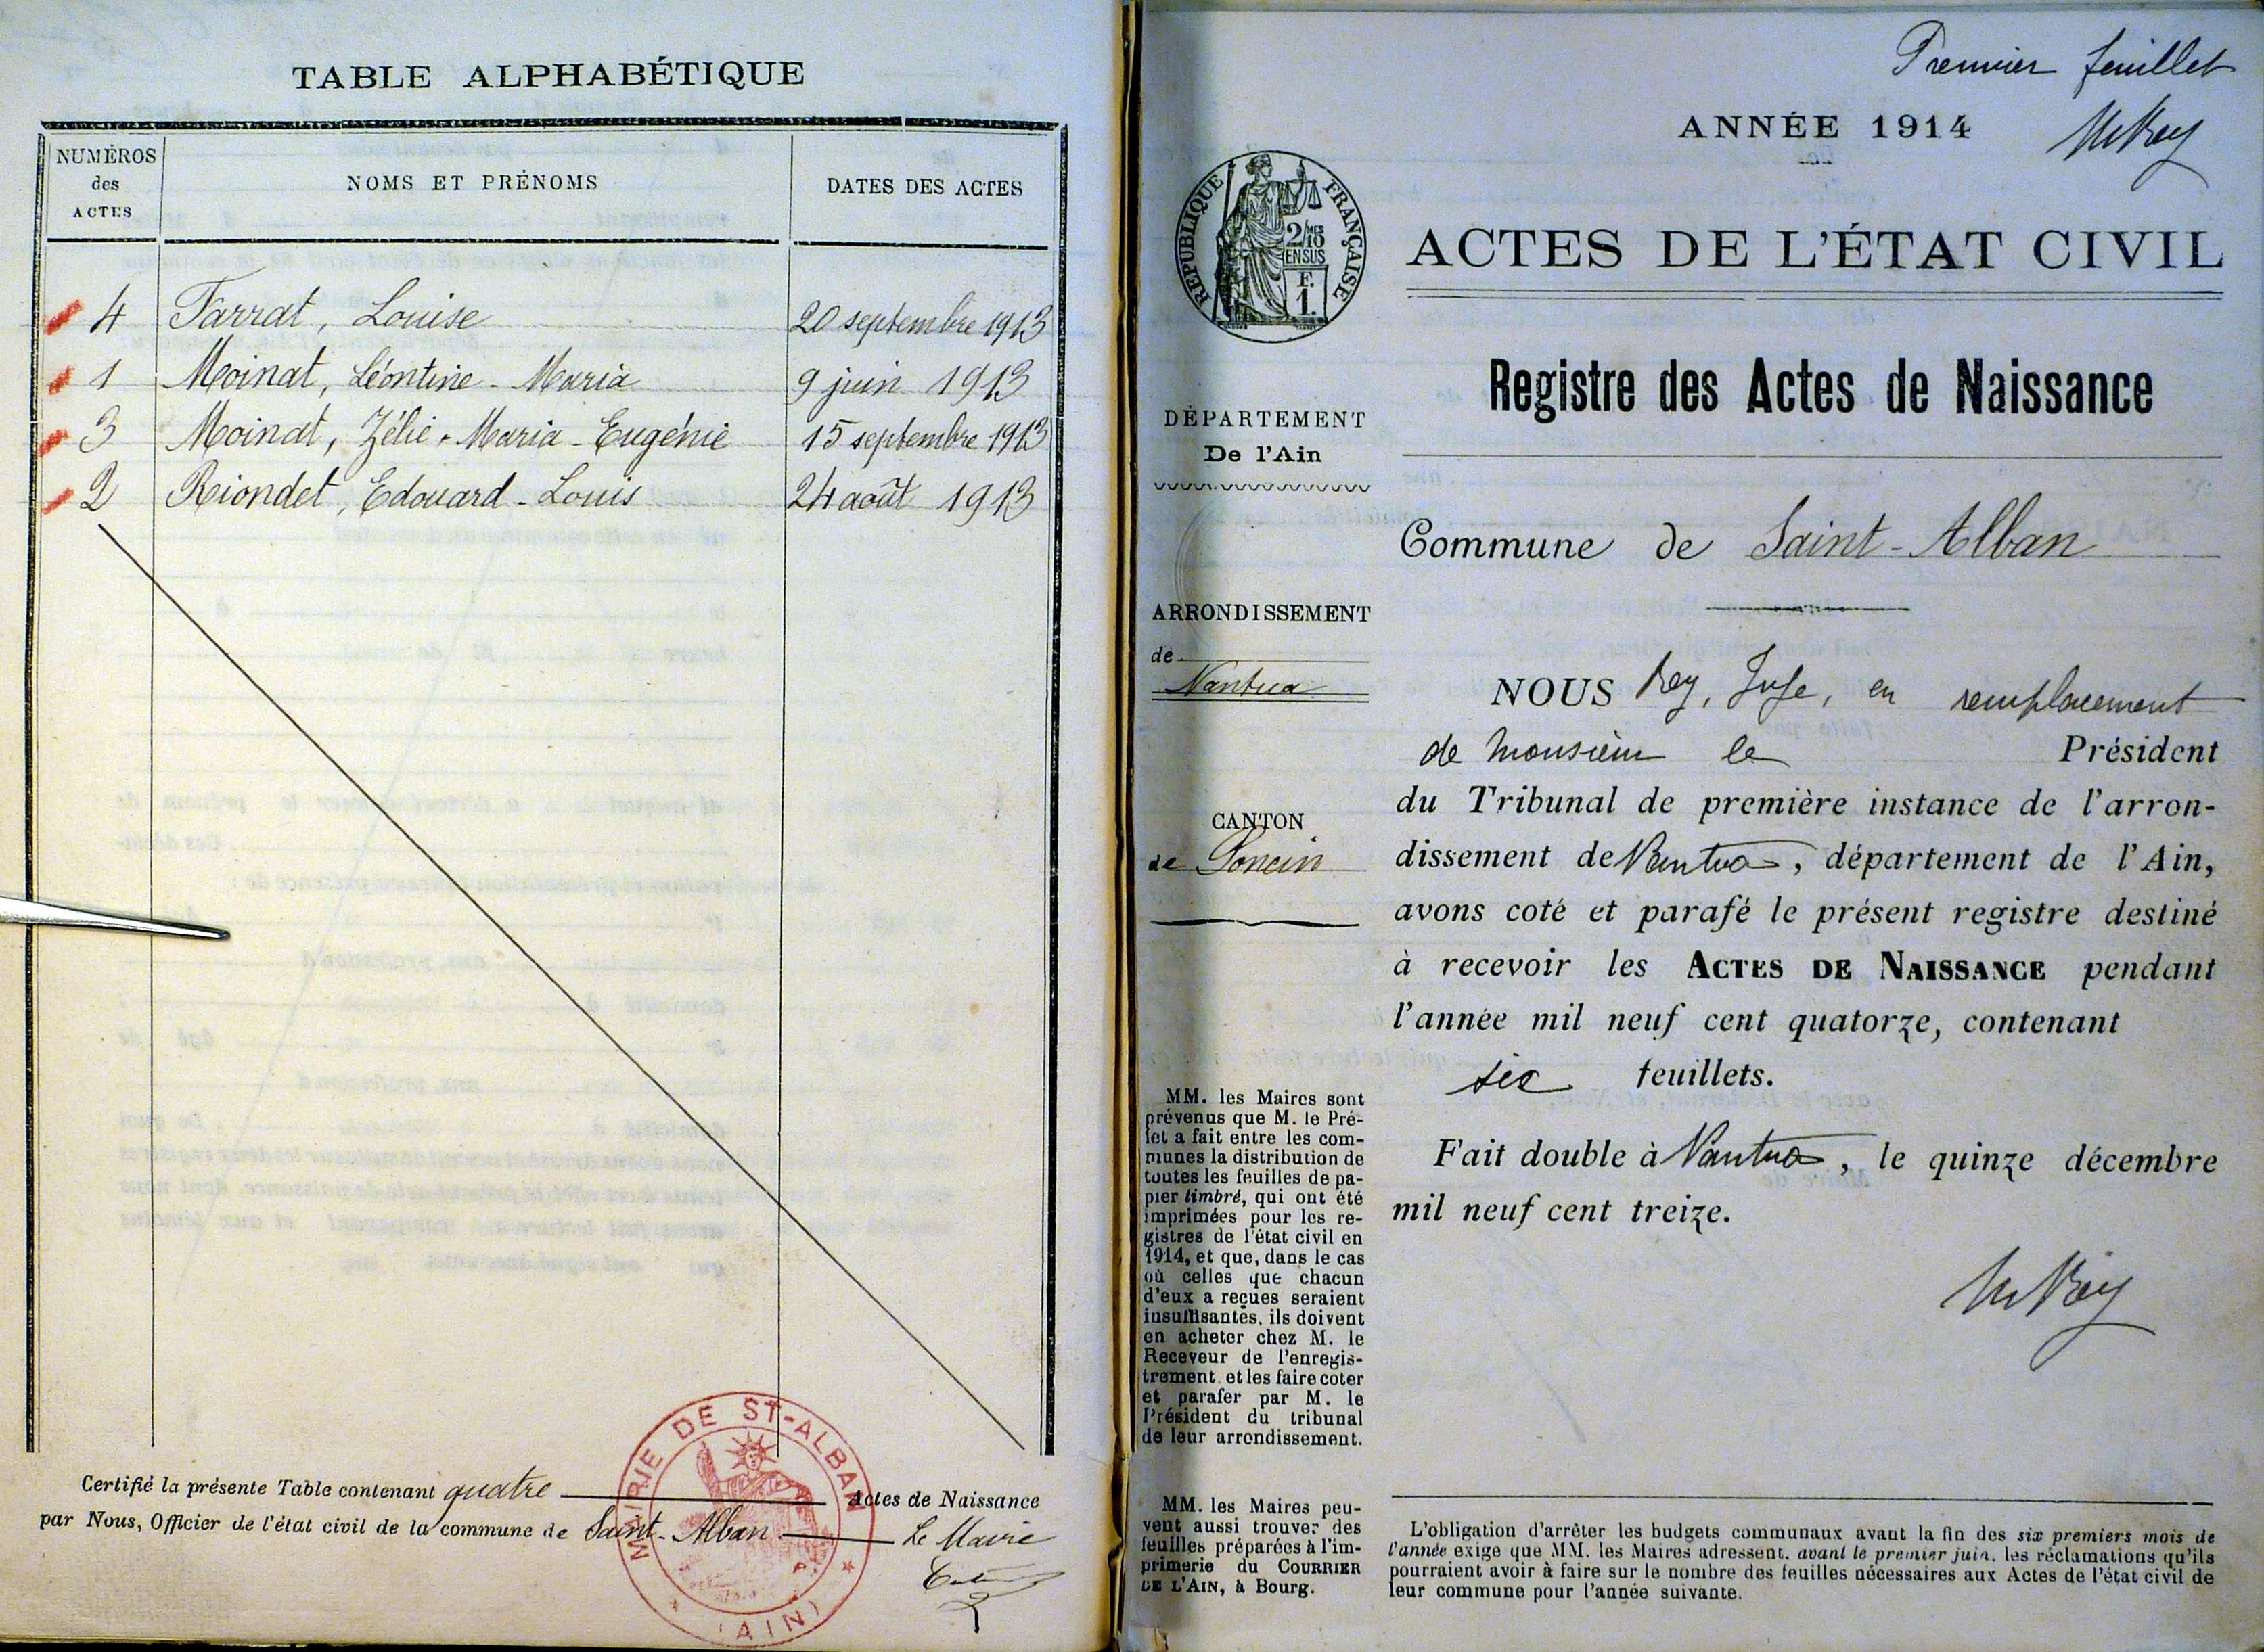 TABLE ALPHABÉTIQUE
NUMÉROS
des
ACTES
NOMS ET PRÉNOMS
DATES DES ACTES
4 Farrat, Louise 20 septembre 1913
1 Moinat, Léontine-Maria 9 juin 1913
3 Moinat, Zélie-Maria-Eugénie 15 septembre 1913
2 Riondet, Edouard-Louis 24 août 1913
Certifié la présente Table contenant quatre Actes de Naissance
par Nous, Officier de l'état civil de la commune de Saint-Alban Le Maire
MAIRIE DE ST-ALBAN
(AIN)
Premier feuillet
ANNÉE 1914
RÉPUBLIQUE FRANÇAISE
2/10MES
EN SUS
F.
1.
ACTES DE L'ÉTAT CIVIL
Registre des Actes de Naissance
DÉPARTEMENT
De l'Ain
Commune de Saint-Alban
ARRONDISSEMENT
de
Nantua
CANTON
de Poncin
NOUS Rey, Juge, en remplacement
de Monsieur le Président
du Tribunal de première instance de l'arron-
dissement de Nantua, département de l'Ain,
avons coté et parafé le présent registre destiné
à recevoir les ACTES DE NAISSANCE pendant
l'année mil neuf cent quatorze, contenant
six feuillets.
Fait double à Nantua, le quinze décembre
mil neuf cent treize.
MM. les Maires sont
prévenus que M. le Pré-
fet a fait entre les com-
munes la distribution de
toutes les feuilles de pa-
pier timbré, qui ont été
imprimées pour les re-
gistres de l'état civil en
1914, et que, dans le cas
où celles que chacun
d'eux a reçues seraient
insuffisantes, ils doivent
en acheter chez M. le
Receveur de l'enregis-
trement. et les faire coter
et parafer par M. le
Président du tribunal
de leur arrondissement.
MM. les Maires peu-
vent aussi trouver des
feuilles préparées à l'im-
primerie du COURRIER
DE L'AIN, à Bourg.
L'obligation d'arrêter les budgets communaux avant la fin des six premiers mois de
l'année exige que MM. les Maires adressent, avant le premier juin, les réclamations qu'ils
pourraient avoir à faire sur le nombre des feuilles nécessaires aux Actes de l'état civil de
leur commune pour l'année suivante.